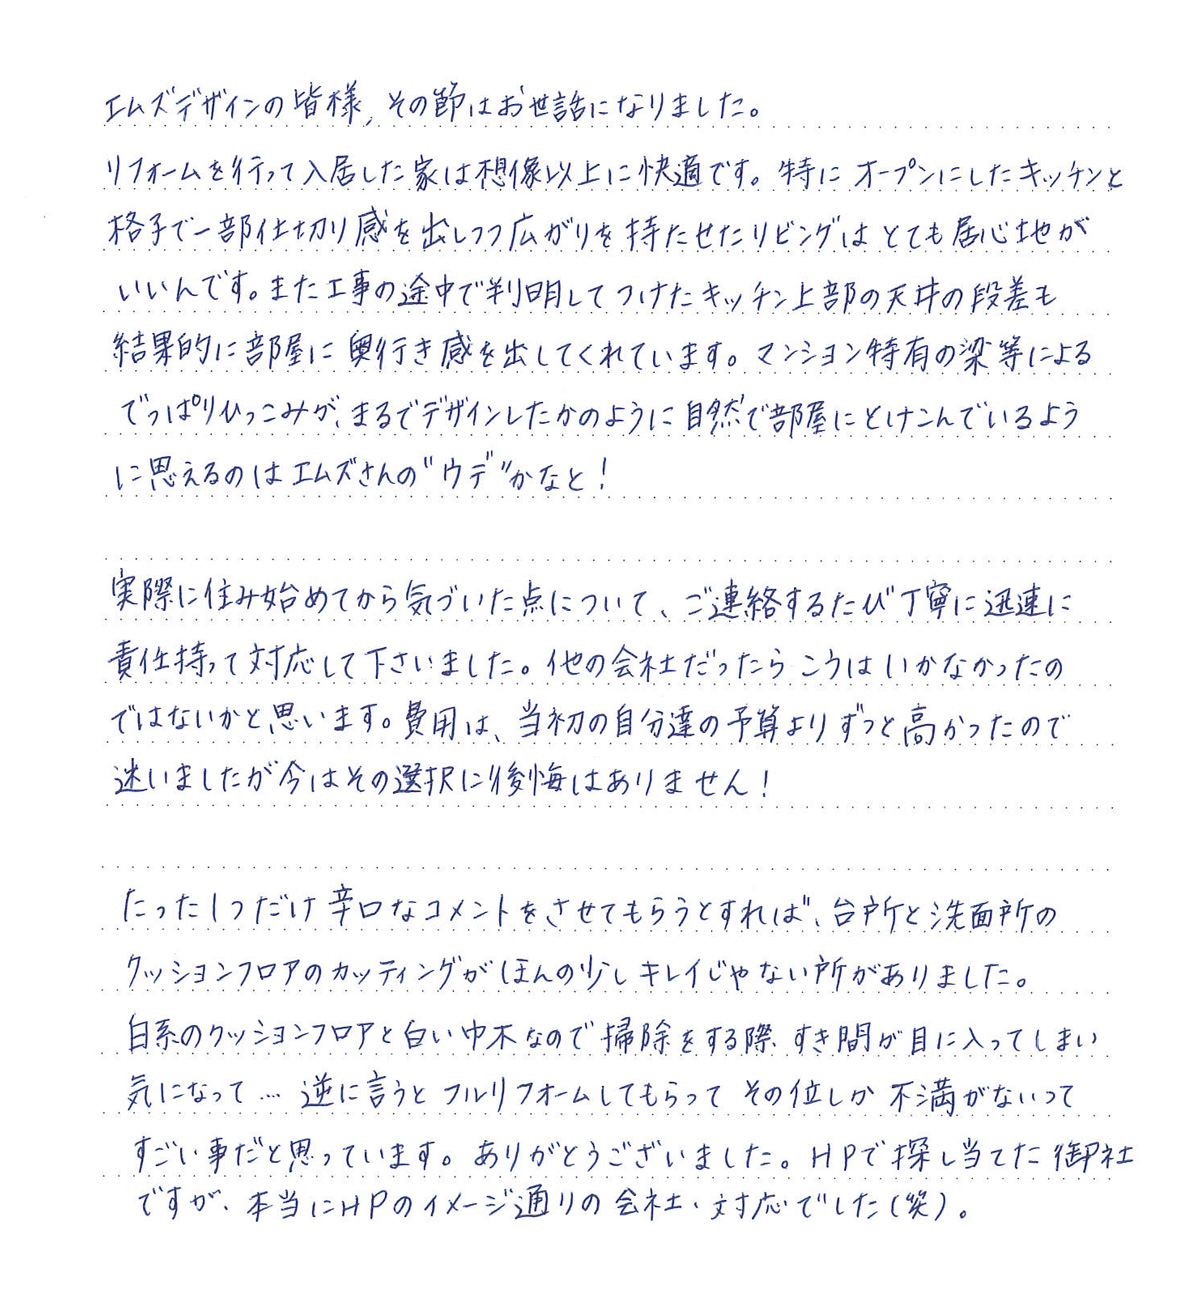 エムズデザインの皆様、その節はお世話になりました。
リフォームを行って入居した家は想像以上に快適です。特にオープンにしたキッチンと
格子で一部仕切り感を出しつつ広がりを持たせたリビングはとても居心地が
いいんです。また工事の途中で判明してつけたキッチン上部の天井の段差も
結果的に部屋に奥行き感を出してくれています。マンション特有の梁等による
でっぱりひっこみが、まるでデザインしたかのように自然で部屋にとけこんでいるよう
に思えるのはエムズさんの"ウデ"かなと！
実際に住み始めてから気づいた点について、ご連絡するたび丁寧に迅速に
責任持って対応して下さいました。他の会社だったらこうはいかなかったの
ではないかと思います。費用は、当初の自分達の予算よりずっと高かったので
迷いましたが今はその選択に後悔はありません！
たった1つだけ辛口なコメントをさせてもらうとすれば、台所と洗面所の
クッションフロアのカッティングがほんの少しキレイじゃない所がありました。
白系のクッションフロアと白い巾木なので掃除をする際、すき間が目に入ってしまい
気になって…逆に言うとフルリフォームしてもらってその位しか不満がないって
すごい事だと思っています。ありがとうございました。HPで探し当てた御社
ですが、本当にHPのイメージ通りの会社・対応でした（笑）。